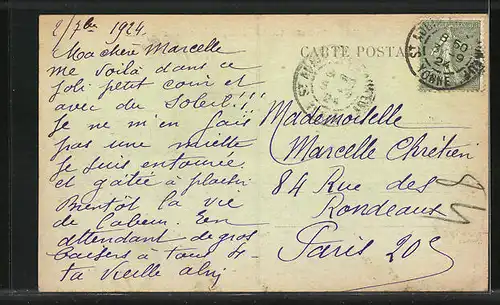 2/7bre 1924.
Ma chère Marcelle
me voilà dans ce
joli petit coin et
avec du soleil!!!
Je ne m'en fais
pas une miette
Je suis entourée
et gâtée à plaisir
Bientôt la vie
de labeur. En
attendant de gros
baisers à tous
ta vieille
CARTE POSTALE
Mademoiselle
Marcelle Chrétien
84 Rue des
Rondeaux
Paris 20e
YONNE